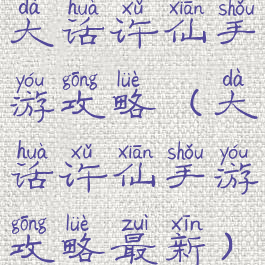 dà huà xǔ xiān shǒu
大话许仙手
yóu gōng lüè dà
游攻略（大
huà xǔ xiān shǒu yóu
话许仙手游
gōng lüè zuì xīn
攻略最新）